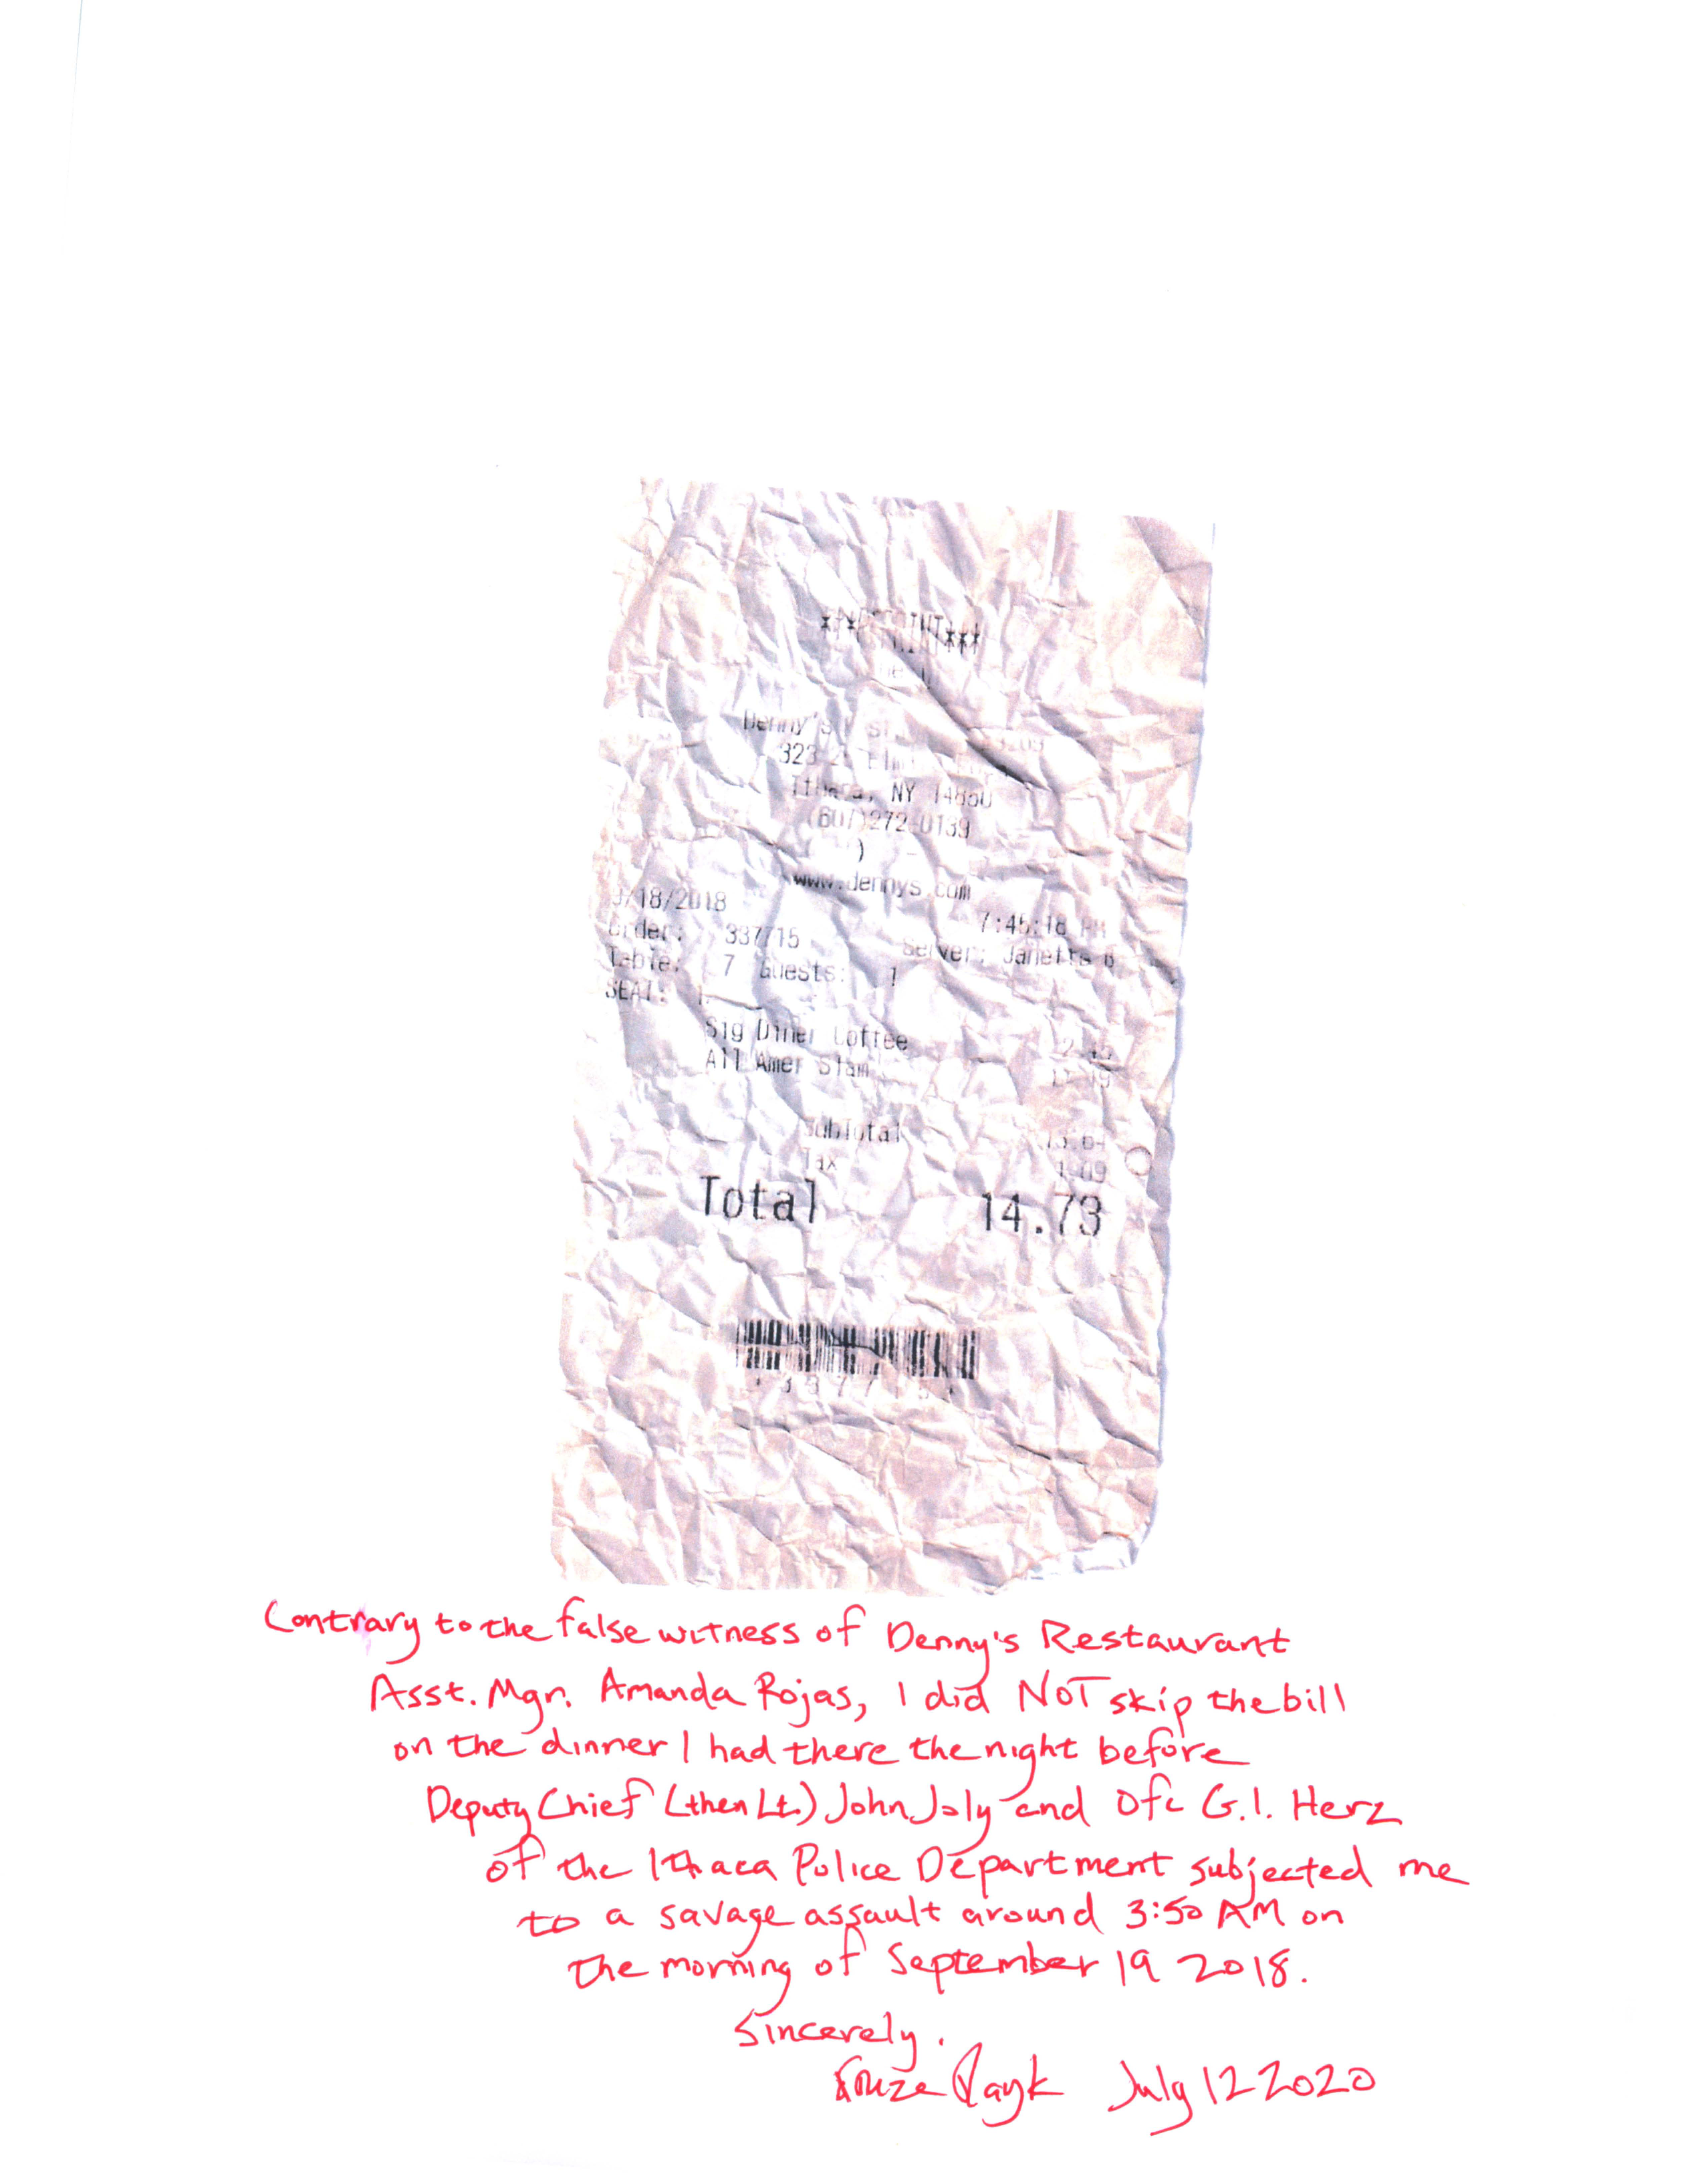 Denny's
Ithaca, NY 14850
(607)272-0139
www.dennys.com
/18/2018 7:45:18 PM
Order: 337715 Server: Janette B
Table: 7 Guests: 1
SEAT: 1
Sig Diner Coffee 2.45
All Amer Slam 11.19
SubTotal 13.64
Tax 1.09
Total 14.73
Contrary to the false witness of Denny's Restaurant
Asst. Mgr. Amanda Rojas, I did NOT skip the bill
on the dinner I had there the night before
Deputy Chief (then Lt.) John Joly and Ofc G.I. Herz
of the Ithaca Police Department subjected me
to a savage assault around 3:50 AM on
the morning of September 19 2018.
Sincerely.
July 12 2020